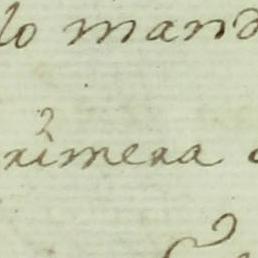 lo mand
rimera